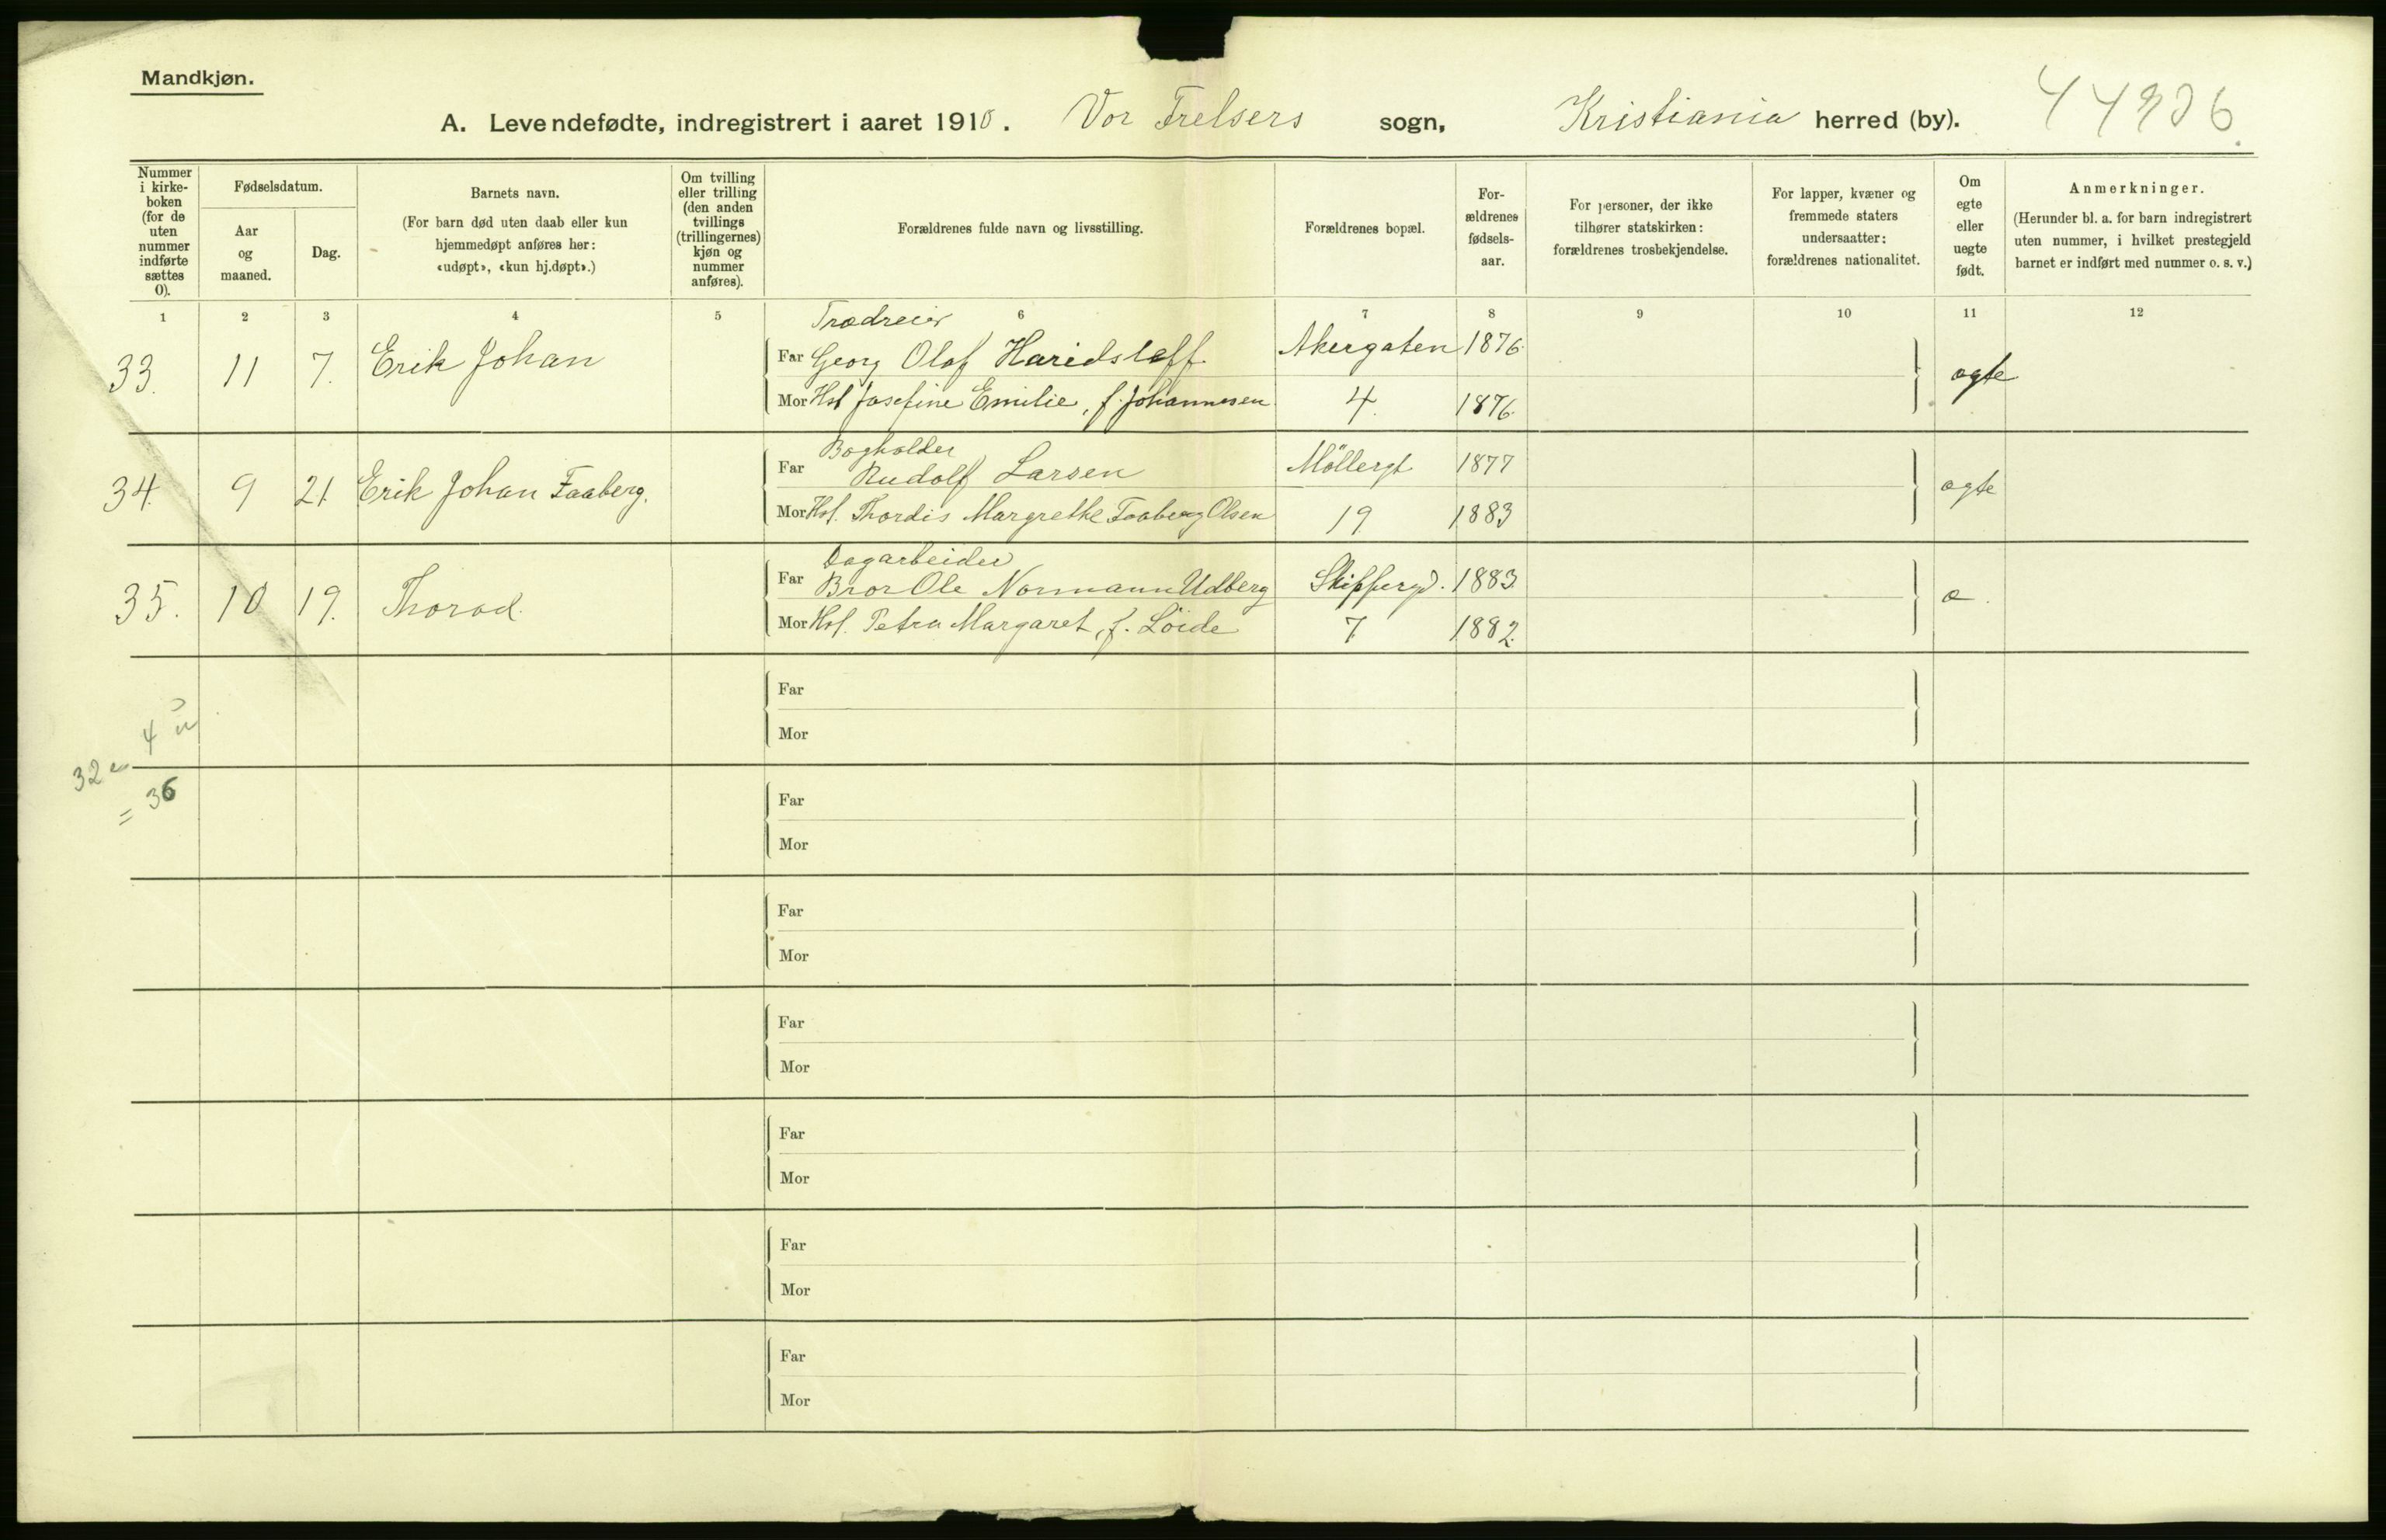 Mandkjøn.
A. Levendefødte, indregistrert i aaret 1910. Vor Frelsers sogn, Kristiania herred (by).
Nummer i kirke-boken (for de uten nummer indførte sættes 0).
Fødselsdatum.
Aar og maaned.
Dag.
Barnets navn.
(For barn død uten daab eller kun hjemmedøpt anføres her: «udøpt», «kun hj.døpt».)
Om tvilling eller trilling (den anden tvillings (trillingernes) kjøn og nummer anføres).
Forældrenes fulde navn og livsstilling.
Forældrenes bopæl.
For-ældrenes fødsels-aar.
For personer, der ikke tilhører statskirken: forældrenes trosbekjendelse.
For lapper, kvæner og fremmede staters undersaatter: forældrenes nationalitet.
Om egte eller uegte født.
Anmerkninger.
(Herunder bl. a. for barn indregistrert uten nummer, i hvilket prestegjeld barnet er indført med nummer o. s. v.)
1 2 3 4 5 6 7 8 9 10 11 12
Trædreier
33. 11 7. Erik Johan Far Georg Olaf Haridsleff Akergaten 1876. ægte
Mor Hst Josefine Emilie, f. Johannesen 4. 1876.
Bogholder
34. 9 21. Erik Johan Faaberg. Far Rudolf Larsen Möllergt 1877 ægte
Mor Hst. Thordis Margrethe Faaberg Olsen 19 1883
Dagarbeider
35. 10 19. Thorod. Far Bror Ole Normann Udberg Skippergd. 1883. æ.
Mor Hst. Petra Margaret, f. Löide 7 1882.
Far
Mor
4 u
32 e
= 36
Far
Mor
Far
Mor
Far
Mor
Far
Mor
Far
Mor
Far
Mor